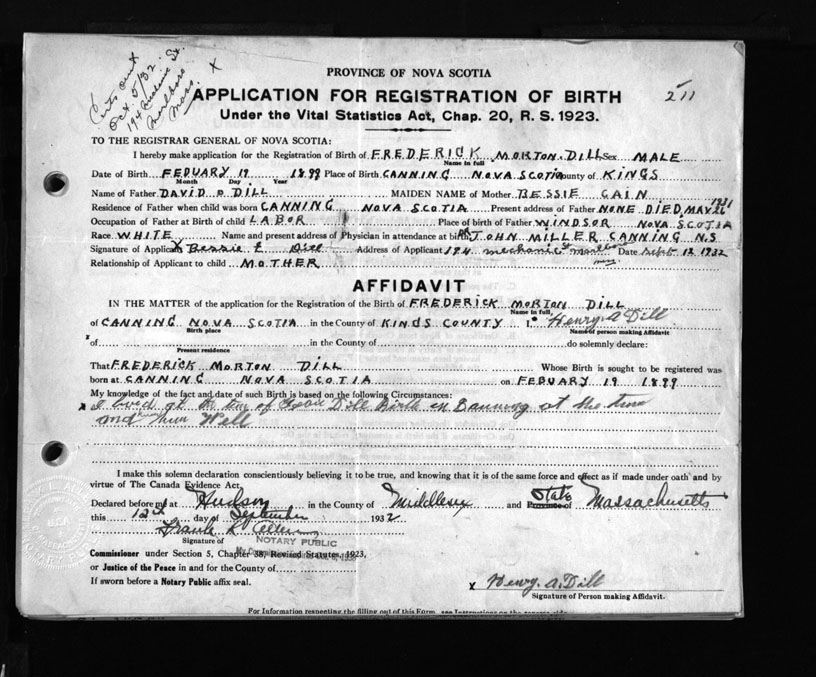 Certs out
Oct. 5/32.
194 St.
Marlboro
Mass. X
PROVINCE OF NOVA SCOTIA
APPLICATION FOR REGISTRATION OF BIRTH
211
Under the Vital Statistics Act, Chap. 20, R. S. 1923.
TO THE REGISTRAR GENERAL OF NOVA SCOTIA:
I hereby make application for the Registration of Birth of FREDERICK MORTON DILL Sex MALE
Name in full
Date of Birth FEDUARY 19 1899 Place of Birth CANNING NOVA SCOTIA County of KINGS
Month Day Year
Name of Father DAVID D DILL MAIDEN NAME of Mother BESSIE CAIN
Residence of Father when child was born CANNING NOVA SCOTIA Present address of Father NONE DIED MAY 26 1931
Occupation of Father at Birth of child LABOR Place of Birth of Father WINDSOR NOVA SCOTIA
Race WHITE Name and present address of Physician in attendance at birth DR JOHN MILLER CANNING N.S
Signature of Applicant X Bessie E Dill Address of Applicant 194 mechanic st Date Sept 12 1932
Relationship of Applicant to child MOTHER
AFFIDAVIT
IN THE MATTER of the application for the Registration of the Birth of FREDERICK MORTON DILL
Name in full,
of CANNING NOVA SCOTIA in the County of KINDS COUNTY I, Henry. A Dill
Birth place Name of person making Affidavit
of in the County of do solemnly declare:
Present residence
That FREDERICK MORTON DILL Whose Birth is sought to be registered was
born at CANNING NOVA SCOTIA on FEDUARY 19 1899
My knowledge of the fact and date of such Birth is based on the following Circumstances:
x I lived at the time of Dill Birth in Canning at the time
and Well
I make this solemn declaration conscientiously believing it to be true, and knowing that it is of the same force and effect as if made under oath and by
virtue of The Canada Evidence Act.
Declared before me at Hudson in the County of Middlesex and State Province of Massachusetts
this 12th day of September 1932
Frank K
Signature of
NOTARY PUBLIC
Commissioner under Section 5, Chapter 38, Revised Statutes, 1923,
or Justice of the Peace in and for the County of
If sworn before a Notary Public affix seal.
x Henry. A. Dill
Signature of Person making Affidavit.
For Information respecting the filling out of this Form, see Instructions on the reverse side